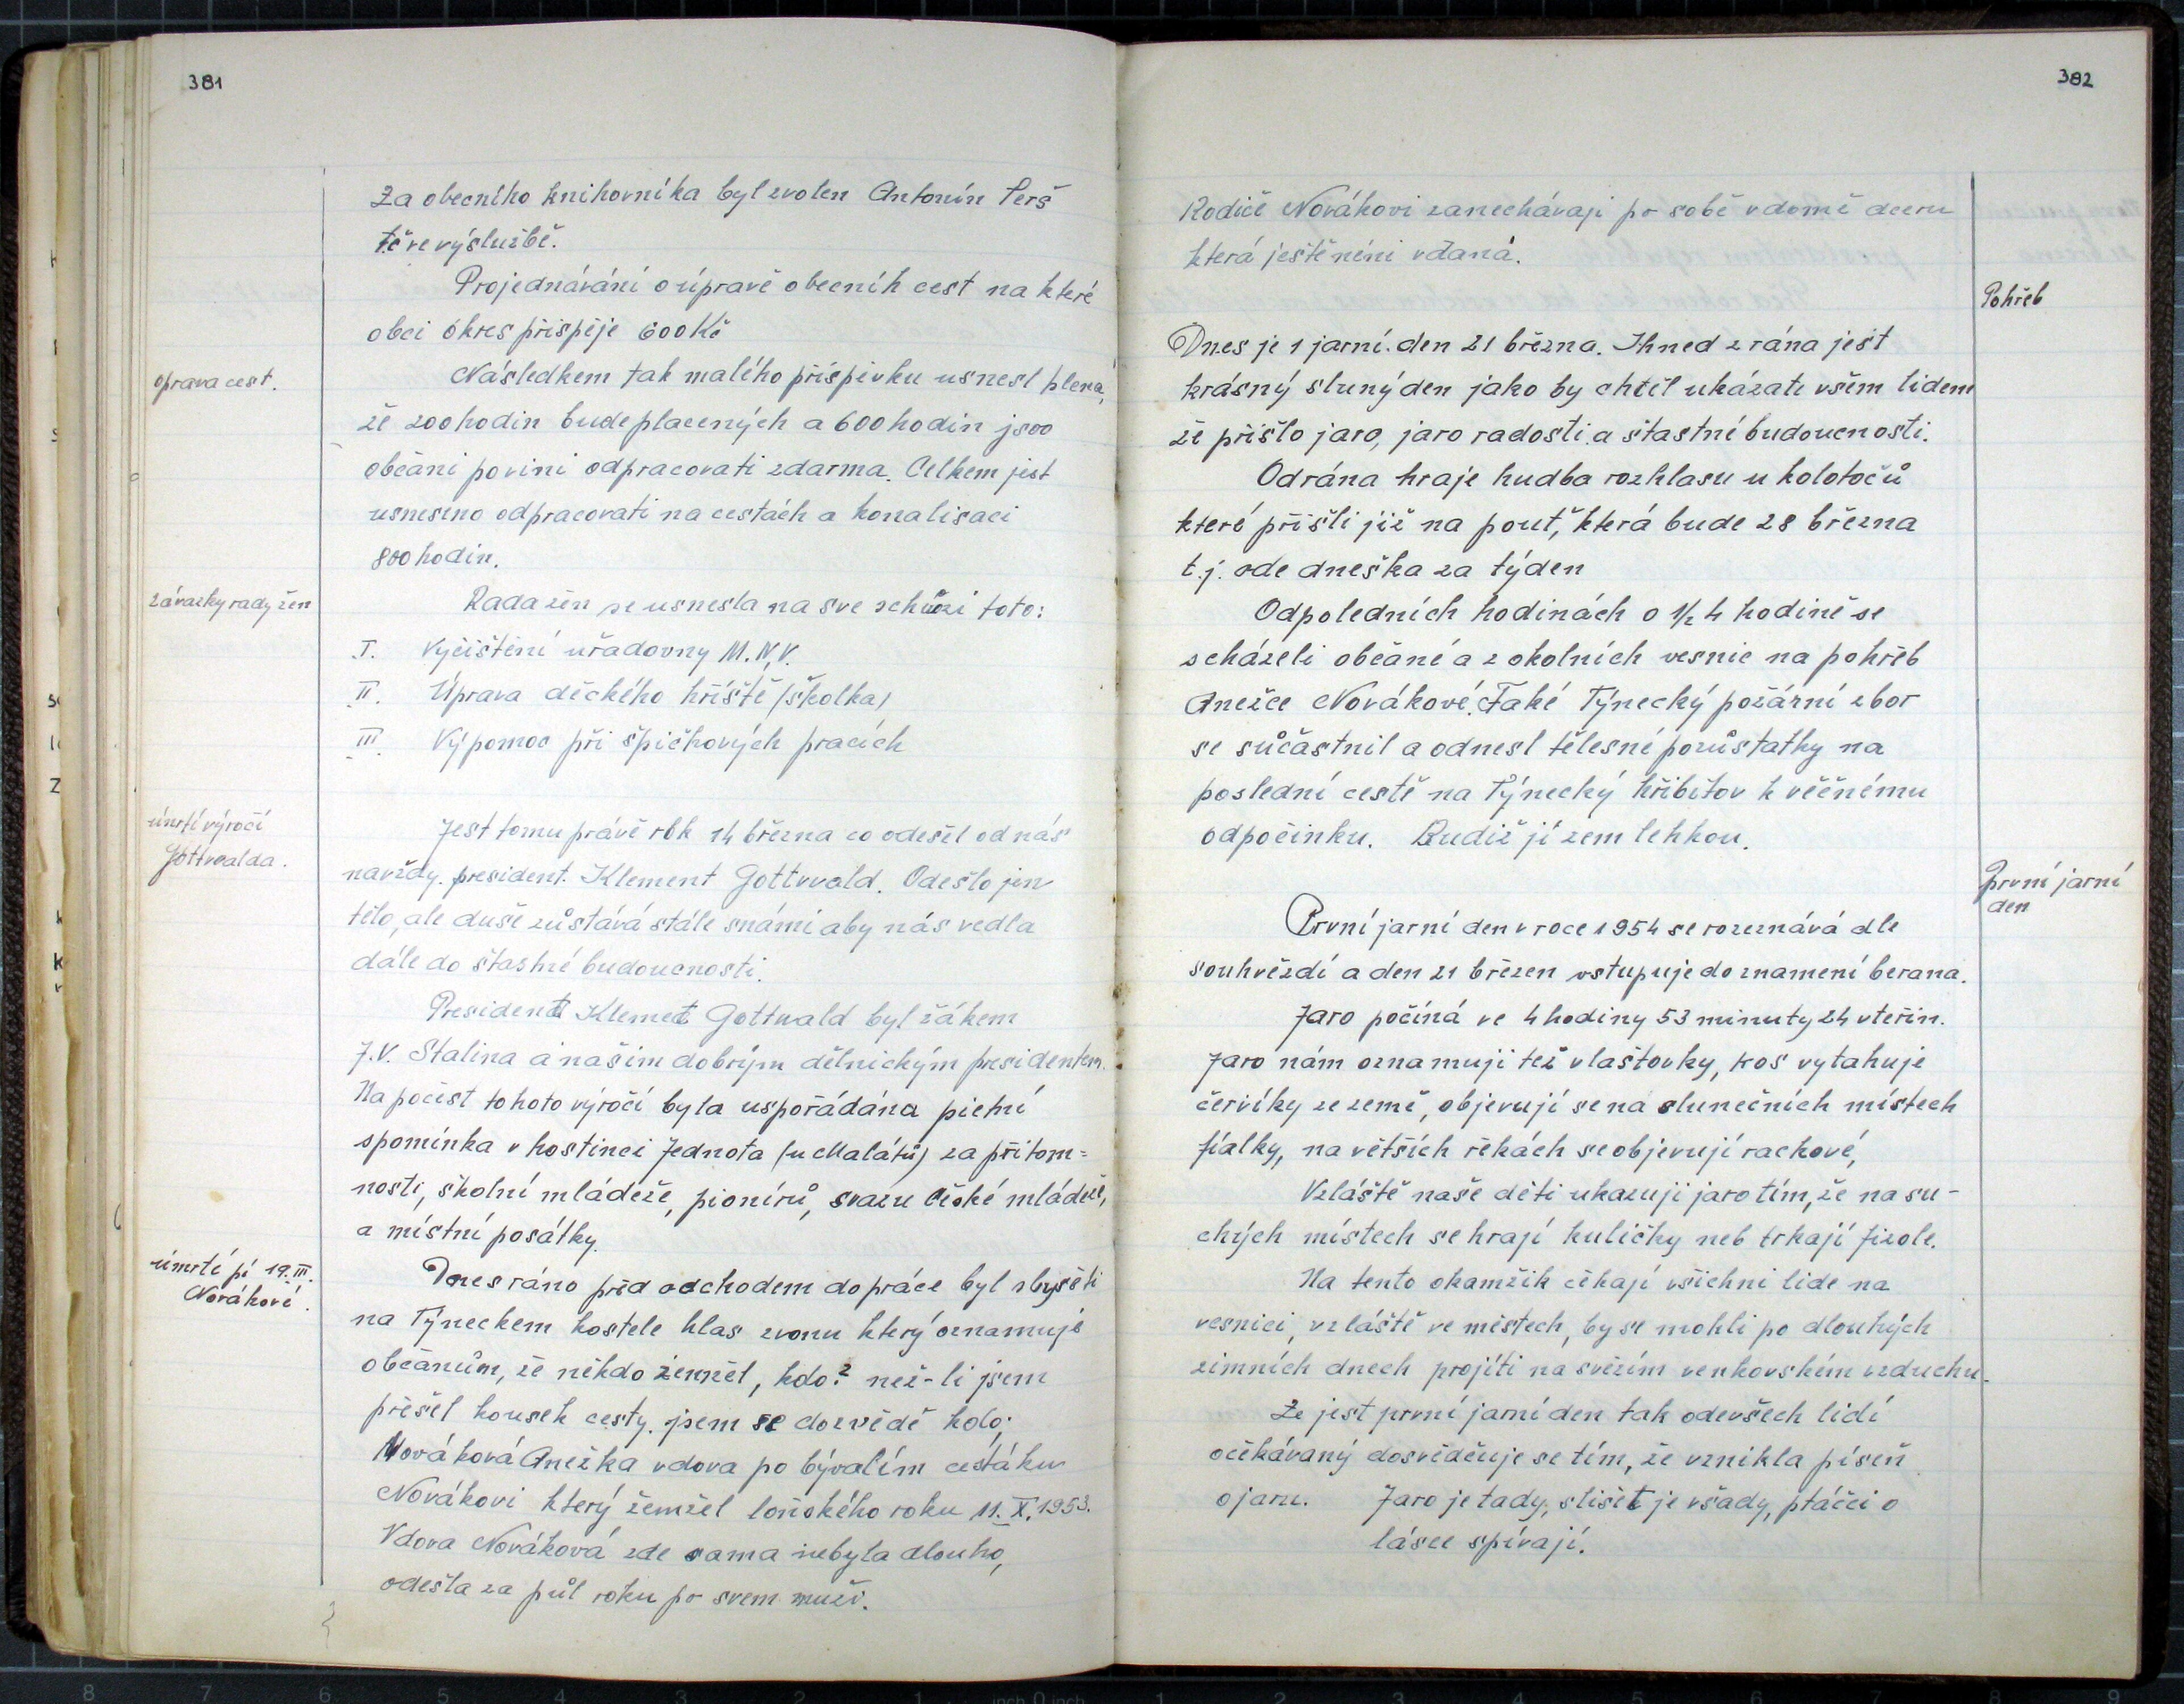 381
Za obecního knihovníka byl zvolen Antonín Perš
tč ve výslužbě.
Projednávání o úpravě obecníh cest na které
obci okres přispěje 600 Kč
oprava cest.
Následkem tak malého příspěvku usnesl plena,
že 200 hodin bude placených a 600 hodin jsoo
občani povini odpracovati zdarma. Celkem jest
usneseno odpracovati na cestách a konalisaci
800 hodin.
závazky rady žen
Rada žen se usnesla na sve schůzi toto:
I. Vyčištění uřadovny M.N.V.
II. Úprava děckého hříště (školka)
III. Výpomoc při špičkových pracích
úmrtí výročí
Gottwalda.
Jest tomu právě rok 14 března co odešel od nás
navždy. president. Klement Gottwald. Odešlo jen
tělo, ale duše zůstává stále snámi aby nás vedla
dále do šťastné budoucnosti.
President Klemet Gottwald byl žákem
J.V. Stalina a našim dobrým dělnickým presidentem.
Na počest tohoto výročí byla uspořádána pietní
spomínka v hostinci Jednota (u Malátů) za přítom=
nosti, školní mládeže, pionírů, svazu České mládeže,
a místní posátky.
úmrtí pí 19.III.
Novákové.
Dnes ráno před odchodem do práce byl slyšeti
na Týneckem kostele hlas zvonu který oznamuje
občanům, že někdo zemřel, kdo? než-li jsem
přešel kousek cesty. jsem se dozvědě kdo;
Nováková Anežka vdova po bývalím cestáku
Novákovi který zemžel loňského roku 11. X. 1953.
Vdova Nováková zde sama nebyla dlouho,
odešla za půl roku po svem muži.
382
Rodiče Novákovi zanechávaji po sobě v domě dceru
která ještě néni vdaná.
Pohřeb
Dnes je 1 jarní. den 21 března. Ihned z rána ješt
krásný sluný den jako by chtěl ukázati všem lidem
že přišlo jaro, jaro radosti a šťastné budoucnosti.
Odrána hraje hudba rozhlasu u kolotočů
které přišli již na pouť, která bude 28 března
t.j. ode dneška za týden
Odpoledních hodinách o 1/2 4 hodině se
scházeli občané a z okolních vesnic na pohřeb
Anežce Novákové. Také Týnecký požární zbor
se súčastnil a odnesl tělesné pozůstatky na
poslední cestě na Týnecký hřibitov k věčnému
odpočinku. Budiž jí zem lehkou.
První jarní
den
První jarní den v roce 1954 se rozeznává dle
souhvězdí a den 21 březen vstupuje do znamení berana.
Jaro počíná ve 4 hodiny 53 minuty 24 vteřin.
Jaro nám oznamuji též vlaštovky, kos vytahuje
červíky ze země, objevují se na slunečních místech
fialky, na větších řekách se objevují rackové,
Vzláště naše děti ukazuji jaro tím, že na su-
chých místech se hrají kuličky neb trkají fizole.
Na tento okamžik čekají všichni lide na
vesnici, vzláště ve městech, by se mohli po dlouhých
zimních dnech projíti na svěžím venkovském vzduchu.
Že jest první jarní den tak odevšech lidí
očekávaný dosvědčuje se tím, že vznikla píseň
o jaru. Jaro je tady, slišet je všady, ptáčci o
lásce spívají.